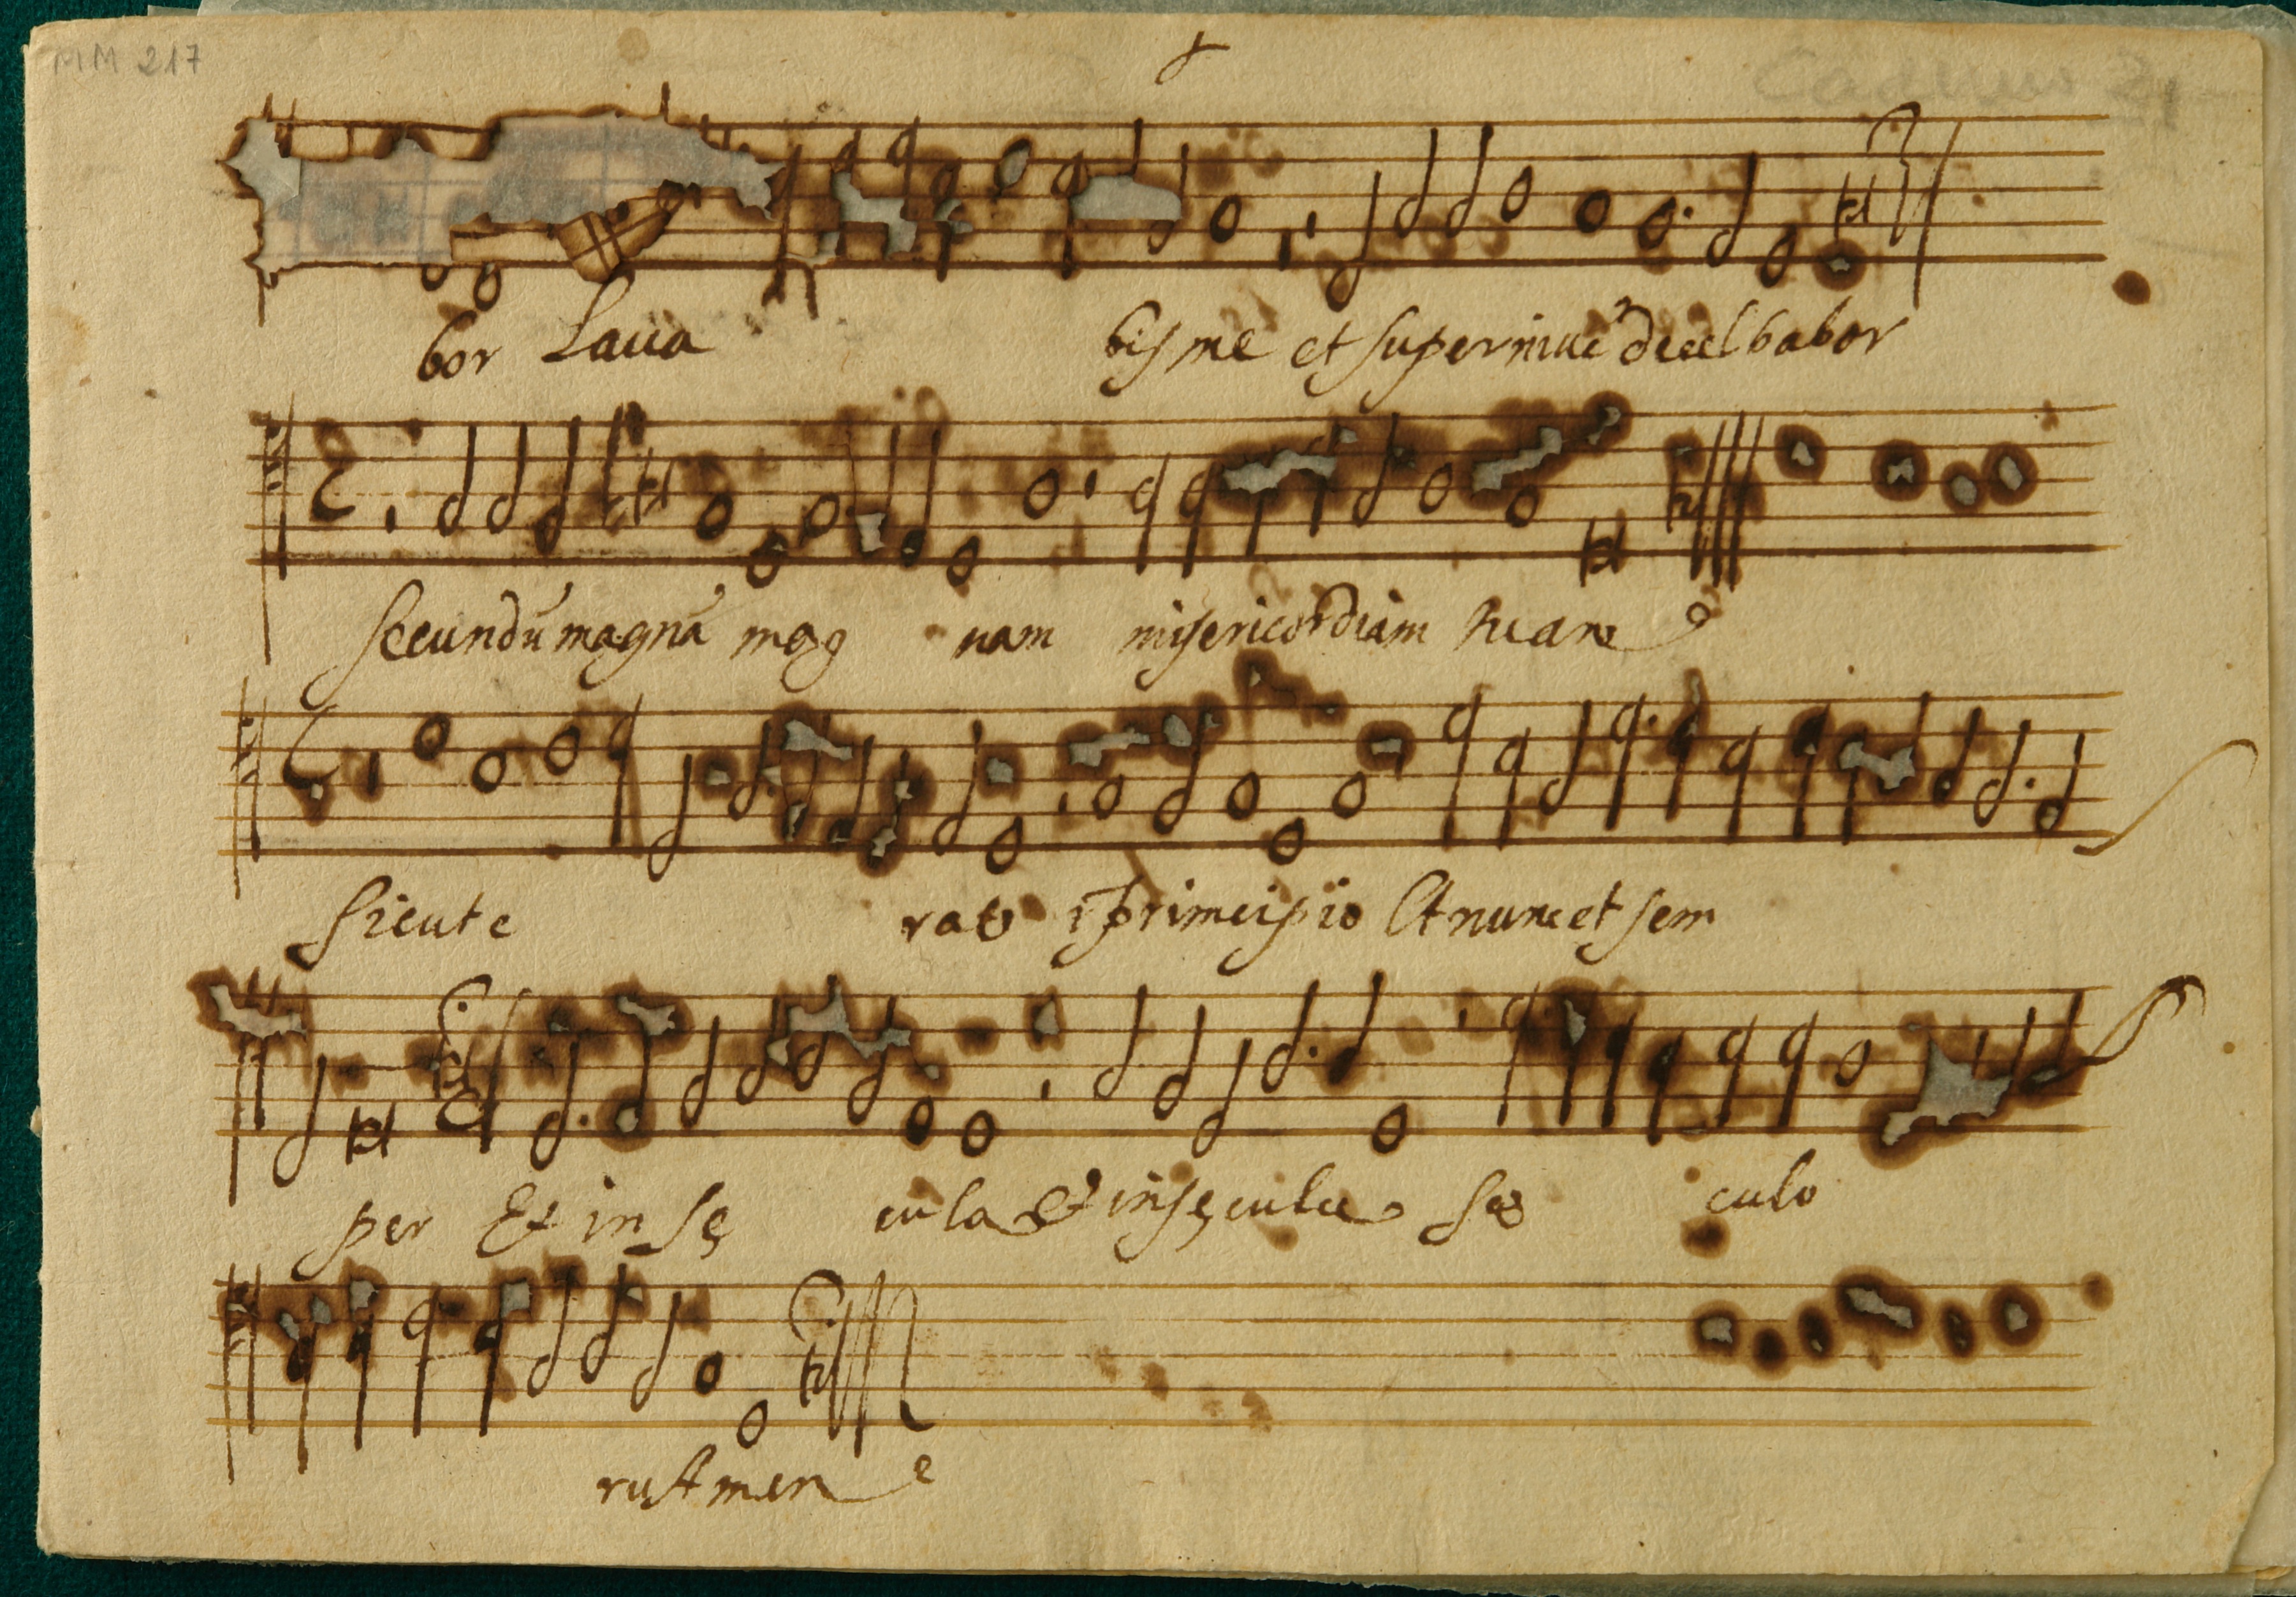 MM 217
bor Laua bis me et super niuē dealbabor
secundū magnā mag nam misericordiam tuam
sicut e rat Et nunc et sem
per Et in sę cula et in sęcula culo
ru Amen